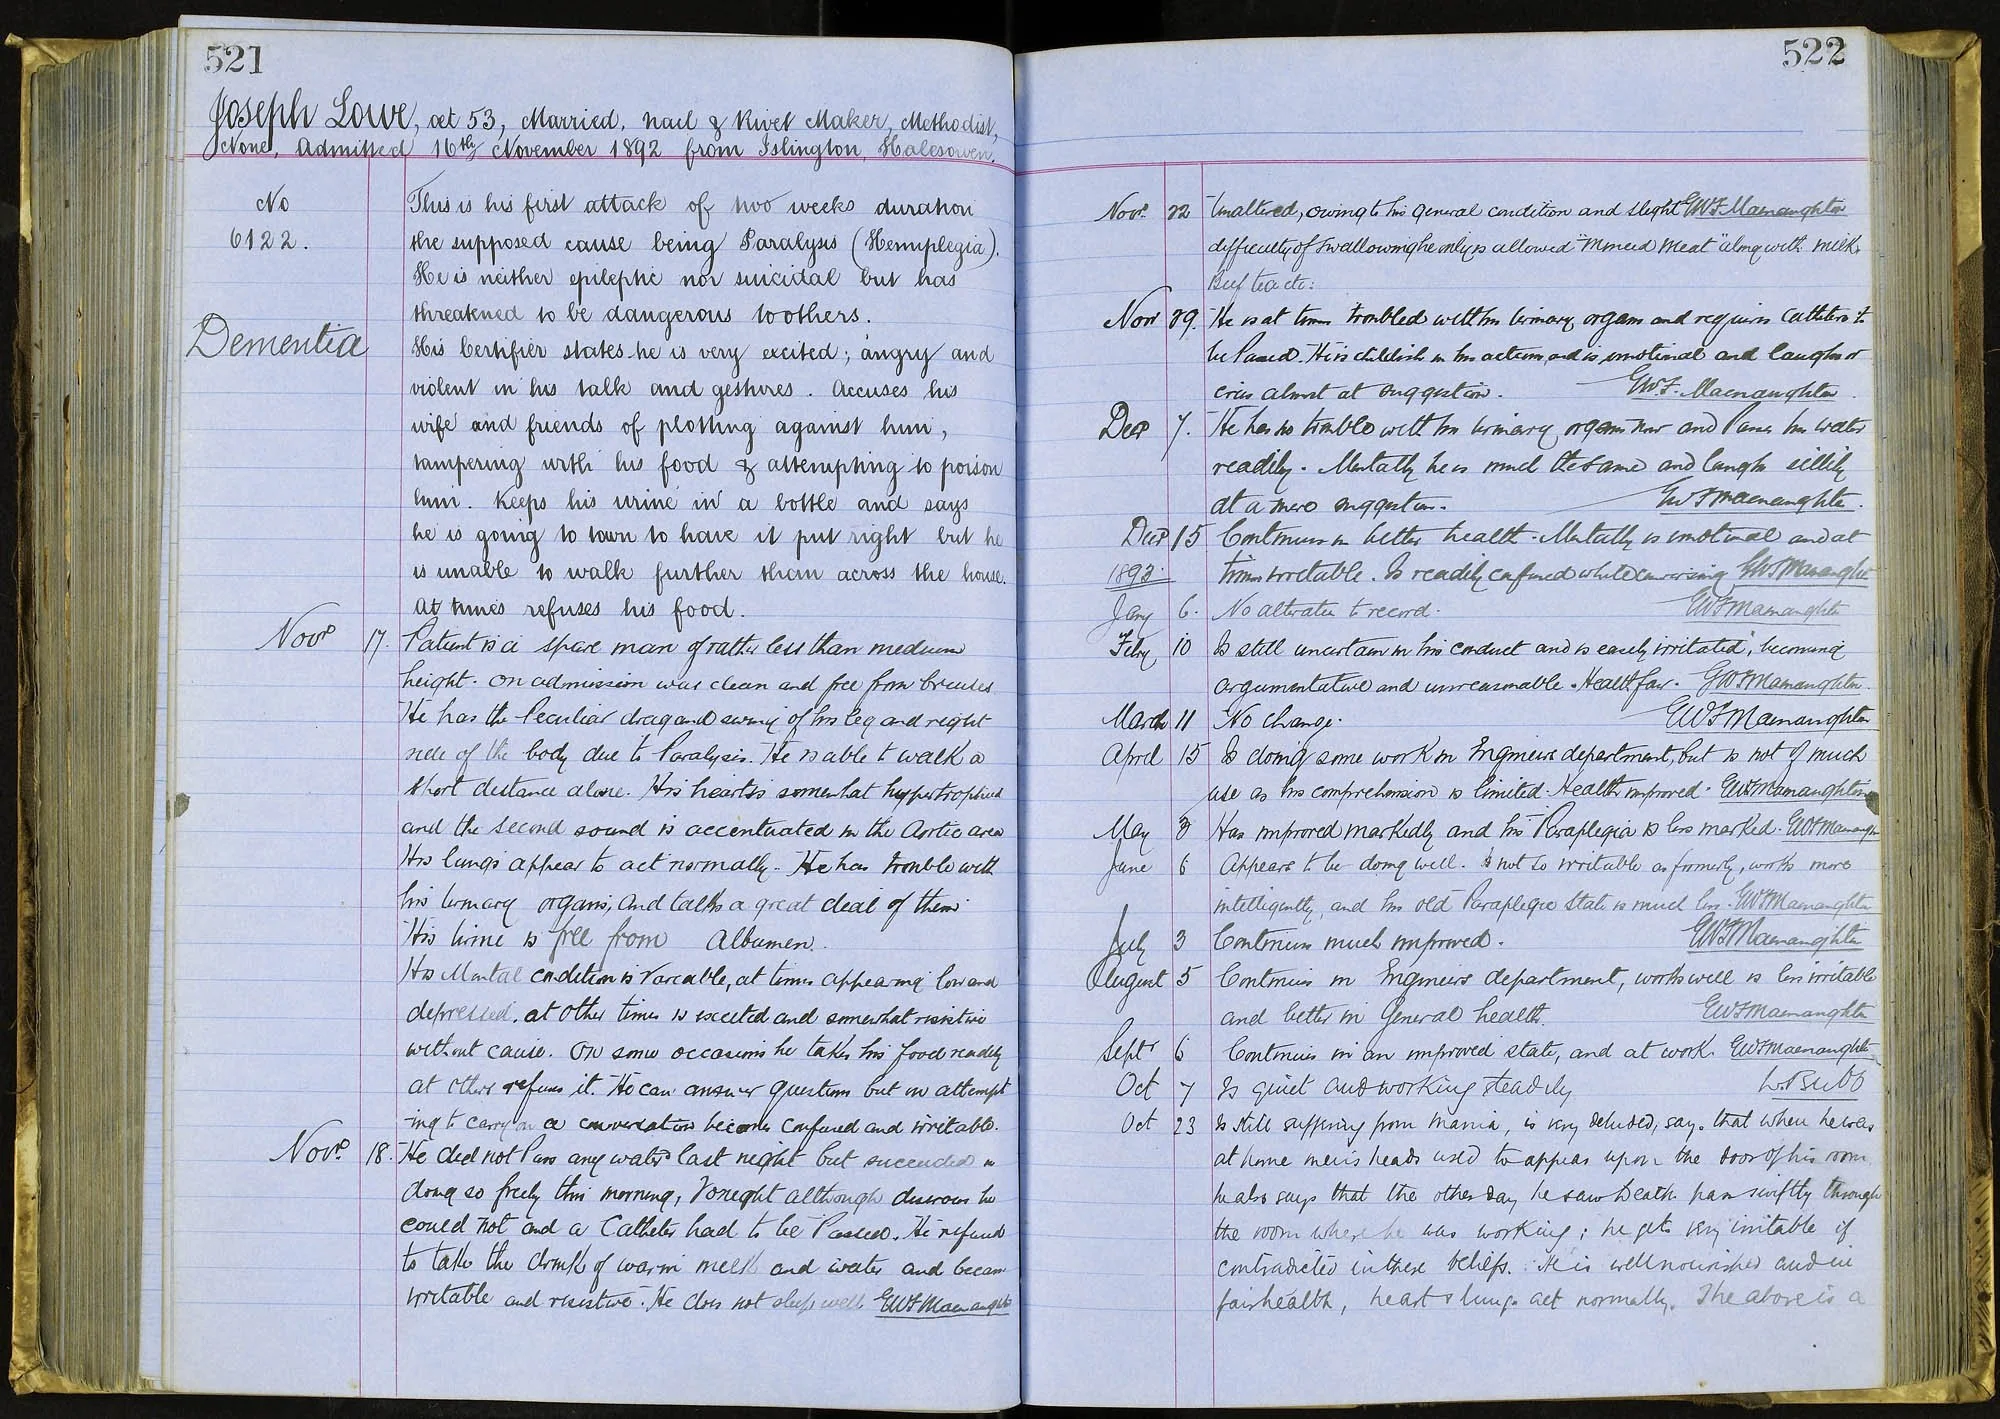 521
Joseph Lowe, aet 53, Married, Nail & Rivet Maker, Methodist,
None, Admitted 16th November 1892 from Islington, Halesowen.
No
6122.
Dementia
This is his first attack of two weeks duration
the supposed cause being Paralysis (Hemiplegia).
He is neither epileptic nor suicidal but has
threatened to be dangerous to others.
His Certifier states he is very excited, angry and
violent in his talk and gestures. Accuses his
wife and friends of plotting against him,
tampering with his food & attempting to poison
him. Keeps his urine in a bottle and says
he is going to town to have it put right but he
is unable to walk further than across the house.
At times refuses his food.
Novr 17. Patient is a spare man of rather less than medium
height. On admission was clean and free from bruises
He has the Peculiar drag and swing of his leg and right
side of the body due to Paralysis. He is able to walk a
short distance alone. His heart is somewhat hypertrophied
and the second sound is accentuated in the Aortic area
His lungs appear to act normally. He has trouble with
his urinary organs, and talks a great deal of them
His urine is free from Albumen.
His Mental condition is variable, at times appearing low and
depressed, at other times is excited and somewhat resistive
without cause. On some occasions he takes his food readily
at others refuses it. He can answer questions but on attempt
-ing to carry on a conversation becomes confused and irritable.
Novr 18. He did not Pass any water last night but succeeded in
doing so freely this morning, Tonight although desirous he
could not and a Catheter had to be Passed. He refused
to take the drink of warm milk and water and became
irritable and resistive. He does not sleep well EWFMacnaughton
522
Novr 22 Unaltered, owing to his general condition and slight EWF Macnaughton
difficulty of swallowing he only is allowed "Minced Meat" along with milk
Beef tea etc:
Novr 29. He is at times troubled with his urinary organs and requires Catheters to
be Passed. He is childish in his actions, and is emotional and laughs or
cries almost at suggestion. EW.F. Macnaughton.
Decr 7. He has no trouble with his urinary organs now and Passes his water
readily. Mentally he is much the same and laughs sillily
at a mere suggestion. EWFMacnaughton.
Decr 15 Continues in better health. Mentally is emotional and at
1893. times irritable. Is readily confused while conversing EWFMacnaughton
Jany 6. No alteration to record. EWFMacnaughton
Febry 10 Is still uncertain in his conduct and is easily irritated, becoming
argumentative and unreasonable. Health fair. EWFMacnaughton.
March 11 No change. EWFMacnaughton
April 15 Is doing some work in Engineers department, but is not of much
use as his comprehension is limited. Health improved. EWFMacnaughton
May 3 Has improved markedly and his Paraplegia is less marked. EWFMacnaughton
June 6 Appears to be doing well. Is not so irritable as formerly, works more
intelligently, and his old Paraplegic State is much less. EWFMacnaughton
July 3 Continues much improved. EWFMacnaughton
August 5 Continues in Engineers department, works well is less irritable
and better in General health. EWFMacnaughton
Septr 6 Continues in an improved state, and at work. EWFMacnaughton
Oct 7 Is quiet and working steadily
Oct 23 Is still suffering from mania, is very deluded, says that when he was
at home men's heads used to appear upon the door of his room
he also says that the other day he saw Death pass swiftly through
the room where he was working; he gets very irritable if
contradicted in these beliefs. He is well nourished and in
fair health, heart & lungs act normally. The above is a